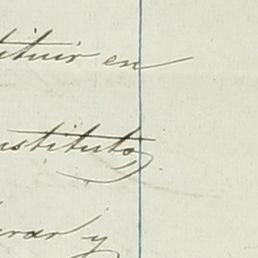 tituir en
nstituto,
rar y